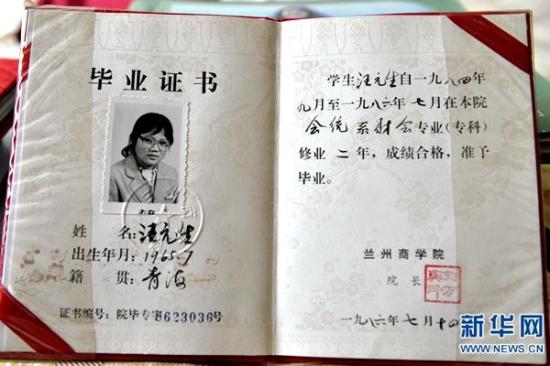 毕业证书
姓名:汪元生
出生年月:1965.7
籍贯:青海
证书编号:院毕专字8623036号
学生汪元生自一九八四年
九月至一九八六年七月在本院
会统系财会专业(专科)
修业二年,成绩合格,准予
毕业。
兰州商学院
院长
一九八六年七月十四
新华网
WWW.NEWS.CN